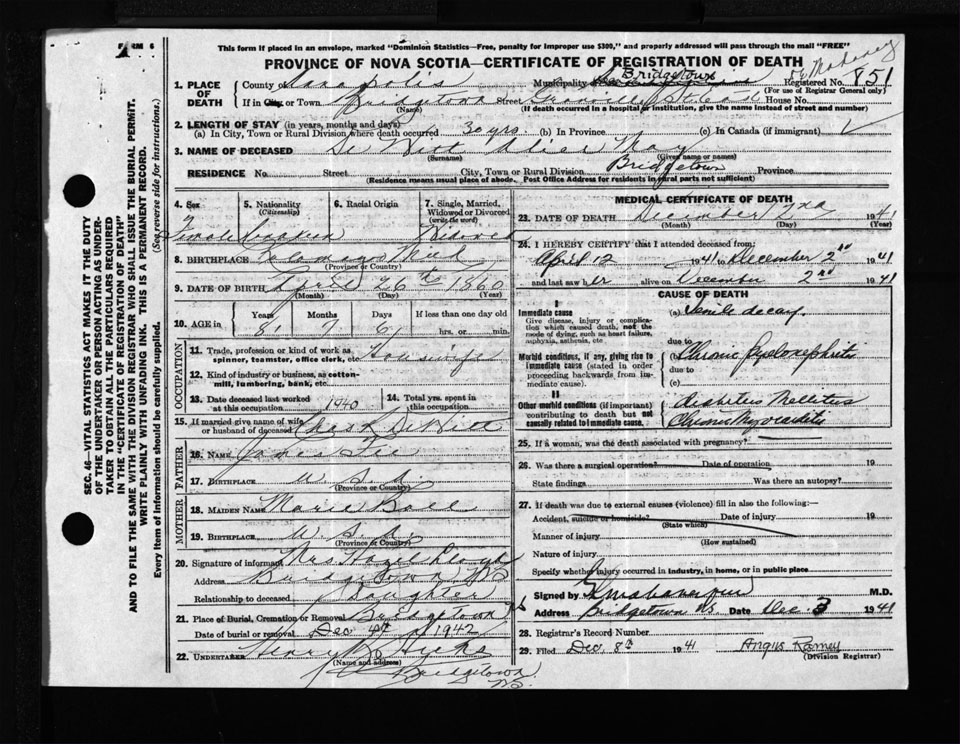 FORM 6
This form if placed in an envelope, marked "Dominion Statistics—Free, penalty for improper use $300," and properly addressed will pass through the mail "FREE"
PROVINCE OF NOVA SCOTIA—CERTIFICATE OF REGISTRATION OF DEATH
Registered No. 851
(For use of Registrar General only)
1. PLACE OF DEATH
County of Annapolis Municipality of Bridgetown
If in City, or Town Bridgetown Street Granville Street House No.
(Name) (If death occurred in a hospital or institution, give the name instead of street and number)
2. LENGTH OF STAY (in years, months and days)
(a) In City, Town or Rural Division where death occurred 30 yrs. (b) In Province (c) In Canada (if immigrant)
3. NAME OF DECEASED De Witt Alice May
(Surname) (Given name or names)
RESIDENCE No. Street City, Town or Rural Division Bridgetown Province
(Residence means usual place of abode. Post Office Address for residents in rural parts not sufficient)
4. Sex Female
5. Nationality (Citizenship)
6. Racial Origin
7. Single, Married, Widowed or Divorced (write the word) Widowed
8. BIRTHPLACE
(Province or Country)
9. DATE OF BIRTH April 26th 1860
(Month) (Day) (Year)
10. AGE in Years 81 Months 7 Days 6 If less than one day old hrs. or min.
OCCUPATION
11. Trade, profession or kind of work as spinner, teamster, office clerk, etc. Housewife
12. Kind of industry or business, as cotton-mill, lumbering, bank, etc.
13. Date deceased last worked at this occupation 1940
14. Total yrs. spent in this occupation
15. If married give name of wife or husband of deceased Chas R DeWitt
FATHER
16. NAME James Fee
17. BIRTHPLACE U.S.A.
(Province or Country)
MOTHER
18. MAIDEN NAME Marie
19. BIRTHPLACE U.S.A.
(Province or Country)
20. Signature of informant Mrs
Address Bridgetown NS
Relationship to deceased Daughter
21. Place of Burial, Cremation or Removal Bridgetown
Date of burial or removal Dec 4th 1942
22. UNDERTAKER Henry Hicks
(Name and address)
Bridgetown NS.
MEDICAL CERTIFICATE OF DEATH
23. DATE OF DEATH December 2nd 1941
(Month) (Day) (Year)
24. I HEREBY CERTIFY that I attended deceased from:
April 12 1941 to December 2nd 1941
and last saw her alive on December 2nd 1941
CAUSE OF DEATH
I
Immediate cause
Give disease, injury or complication which caused death, not the mode of dying, such as heart failure, asphyxia, asthenia, etc
(a) Senile decay
due to
Morbid conditions, if any, giving rise to immediate cause (stated in order proceeding backwards from immediate cause).
(b) Chronic Pyelonephritis
due to
(c)
II
Other morbid conditions (if important) contributing to death but not causally related to immediate cause.
Diabetes Mellitus
Chronic Myocarditis
25. If a woman, was the death associated with pregnancy?
26. Was there a surgical operation? Date of operation 19
State findings Was there an autopsy?
27. If death was due to external causes (violence) fill in also the following:—
Accident, suicide or homicide? Date of injury 19
(State which)
Manner of injury
(How sustained)
Nature of injury
Specify whether injury occurred in industry, in home, or in public place
Signed by M.D.
Address Bridgetown NS. Date Dec. 3 1941
28. Registrar's Record Number
29. Filed Dec. 8th 1941 Angus Ramey
(Division Registrar)
SEC. 46—VITAL STATISTICS ACT MAKES IT THE DUTY
OF THE UNDERTAKER OR PERSON ACTING AS UNDER-
TAKER TO OBTAIN ALL THE PARTICULARS REQUIRED
IN THE "CERTIFICATE OF REGISTRATION OF DEATH"
AND TO FILE THE SAME WITH THE DIVISION REGISTRAR WHO SHALL ISSUE THE BURIAL PERMIT.
WRITE PLAINLY WITH UNFADING INK. THIS IS A PERMANENT RECORD.
Every item of Information should be carefully supplied. (See reverse side for instructions.)